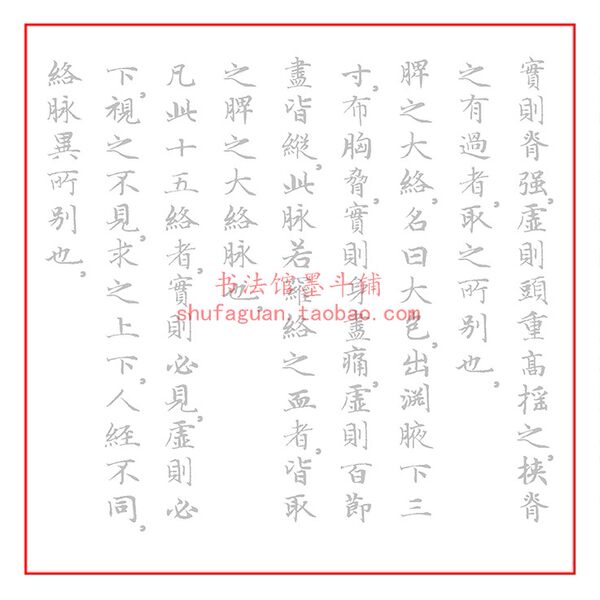 實則脊强，虛則頭重高揺之，挟脊
之有過者，取之所别也，
脾之大絡，名曰大包，出渊腋下三
寸，布胸脅，實則身盡痛，虛則百節
盡皆縱，此脉若羅絡之血者，皆取
之脾之大絡脉也，
凡此十五絡者，實則必見，虛則必
下，視之不見，求之上下，人經不同，
絡脉異所别也，
书法馆墨斗铺
shufaguan.taobao.com